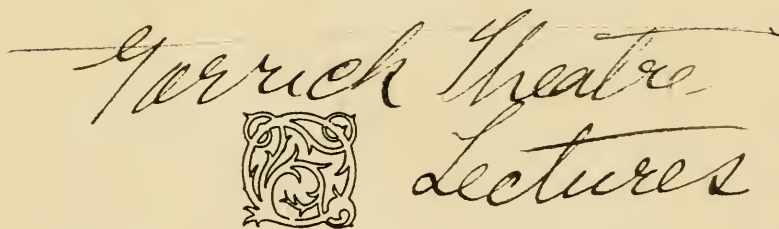 Garrick Theatre
Lectures